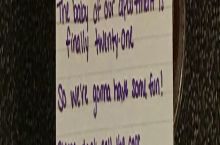 The baby of our apartment is
finally twenty-one
So we're gonna have some fun!